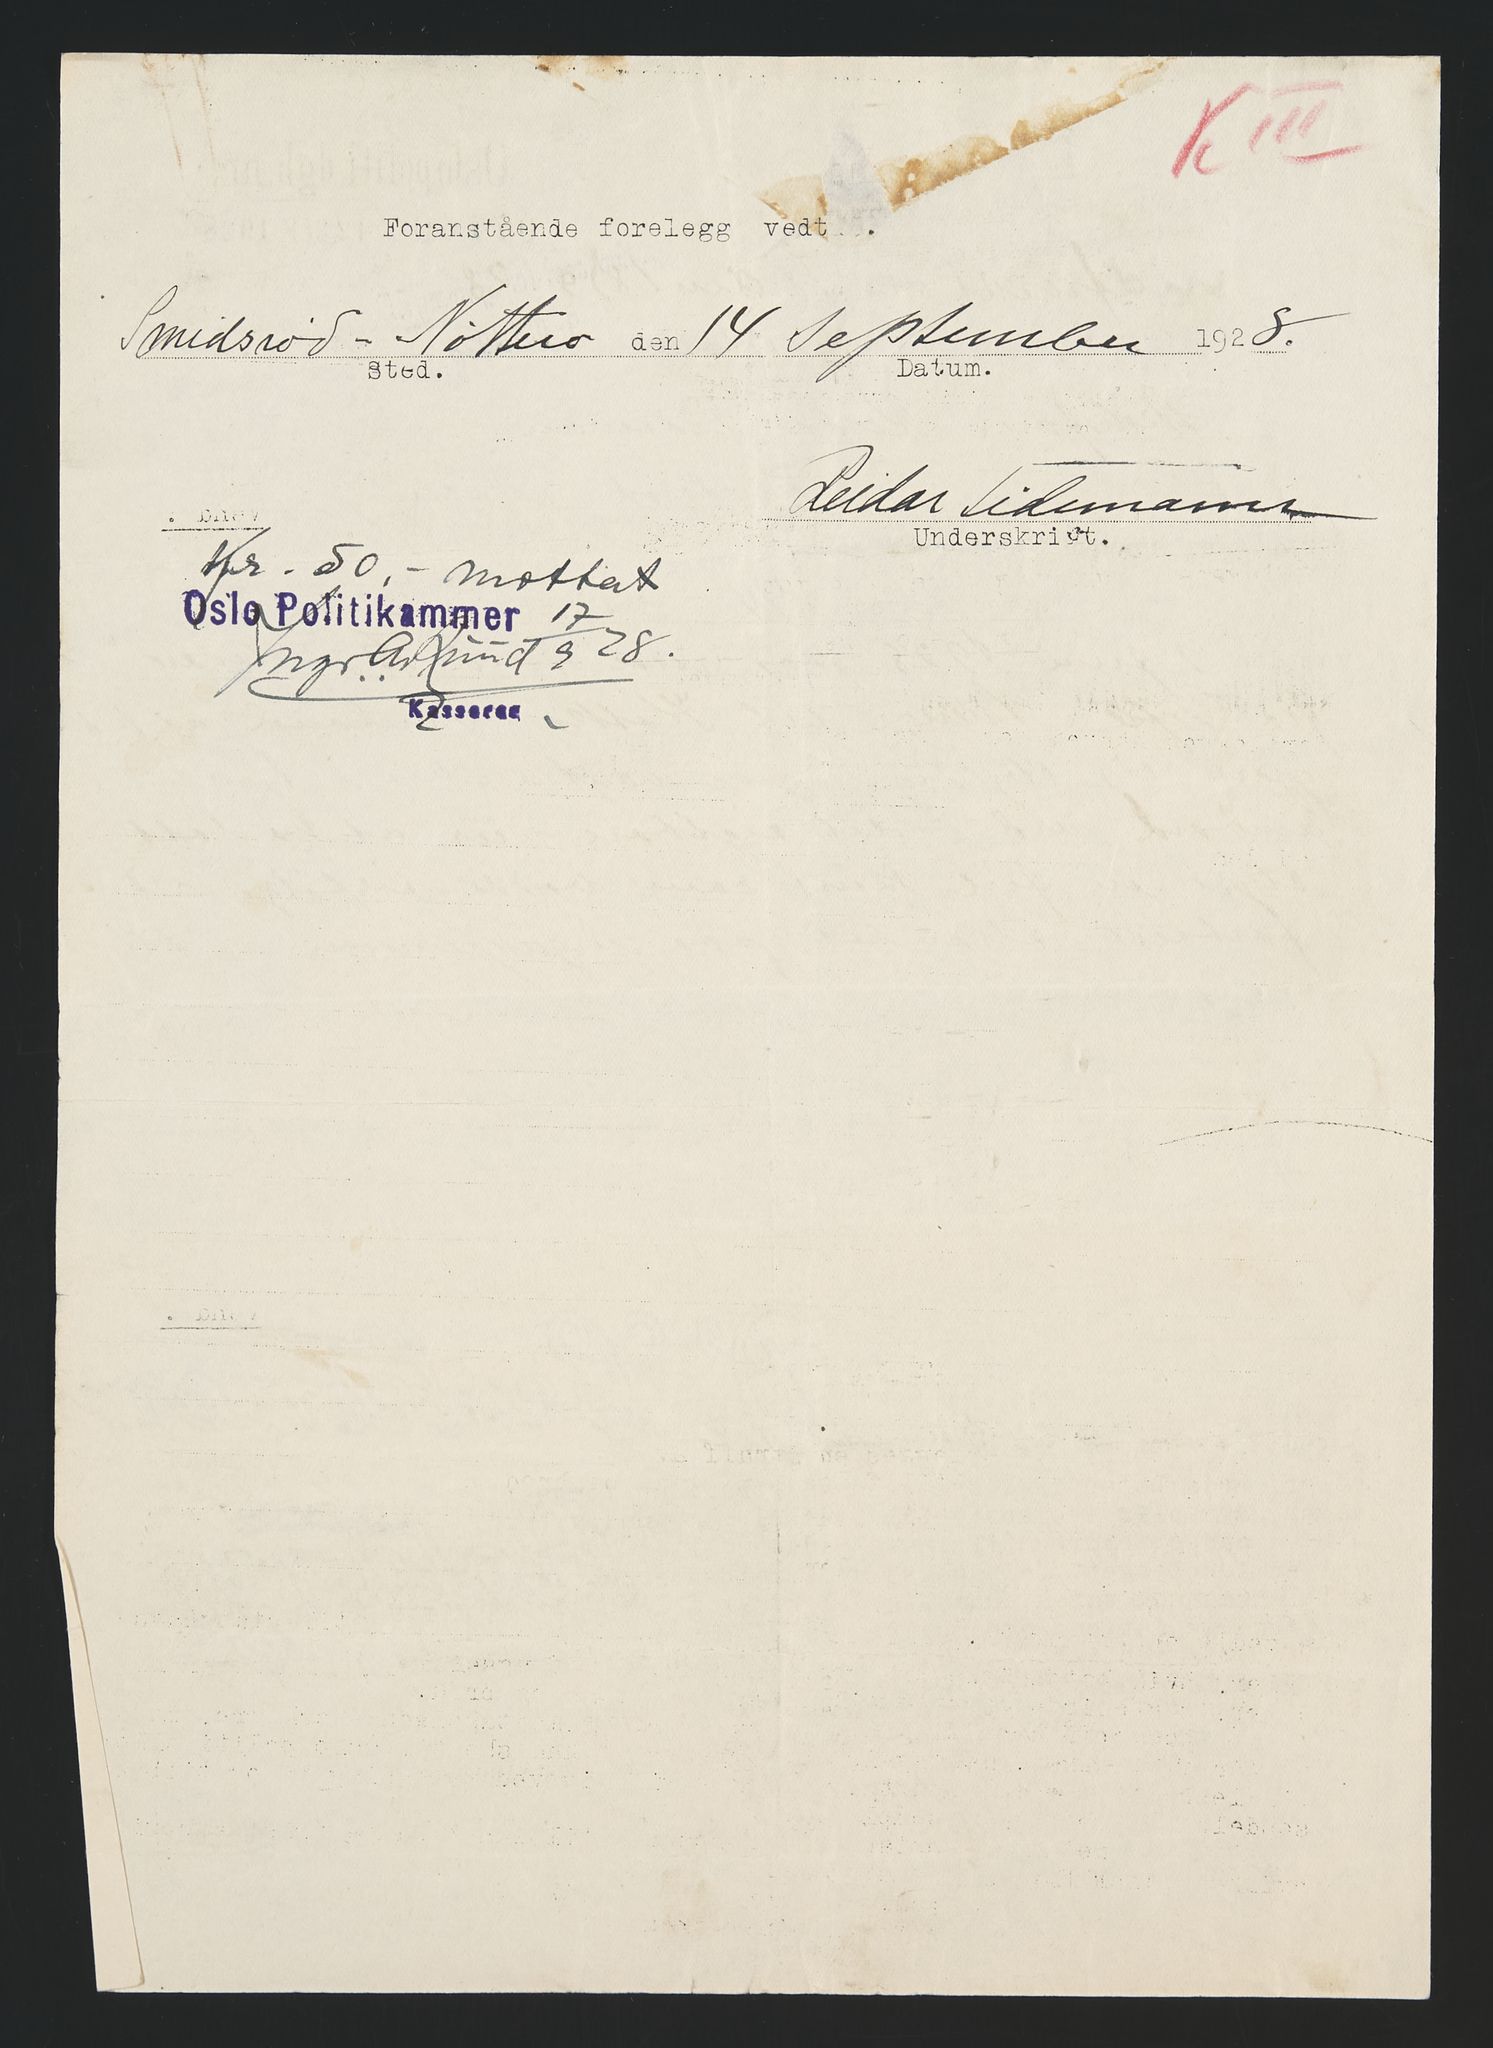 K III
Foranstående forelegg vedt .
Smidsrød - Nøtterø den 14 September 1928.
Sted. Datum.
Reidar Tidemann
Underskrift.
Kr. 50,- mottat
Oslo Politikammer 17
9 28.
Kasserer